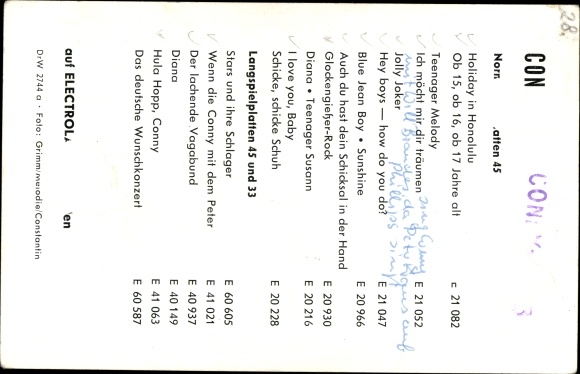 28.
CON
CON
Norn atten 45
Holiday in Honolulu
Ob 15, ob 16, ob 17 Jahre alt E 21 082
Teenager Melody
Ich möcht mit dir träumen E 21 052
sing Conny
mit Will Brandes da Peter Kraus auf
Phillips singt
Jolly Joker
Hey boys — how do you do? E 21 047
Blue Jean Boy • Sunshine E 20 966
Auch du hast dein Schicksal in der Hand
Glockengießer-Rock E 20 930
Diana • Teenager Susann E 20 216
I love you, Baby
Schicke, schicke Schuh E 20 228
Langspielplatten 45 und 33
Stars und ihre Schlager E 60 605
Wenn die Conny mit dem Peter E 41 021
Der lachende Vagabund E 40 937
Diana E 40 149
Hula Hopp, Conny E 41 063
Das deutsche Wunschkonzert E 60 587
auf ELECTROLA en
DrW 2744 a · Foto: Grimm/Melodie/Constantin